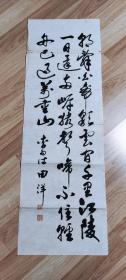 朝辞白帝彩雲间千里江陵
一日还两岸猿聲啼不住轻
舟已过万重山 李白诗 田洋